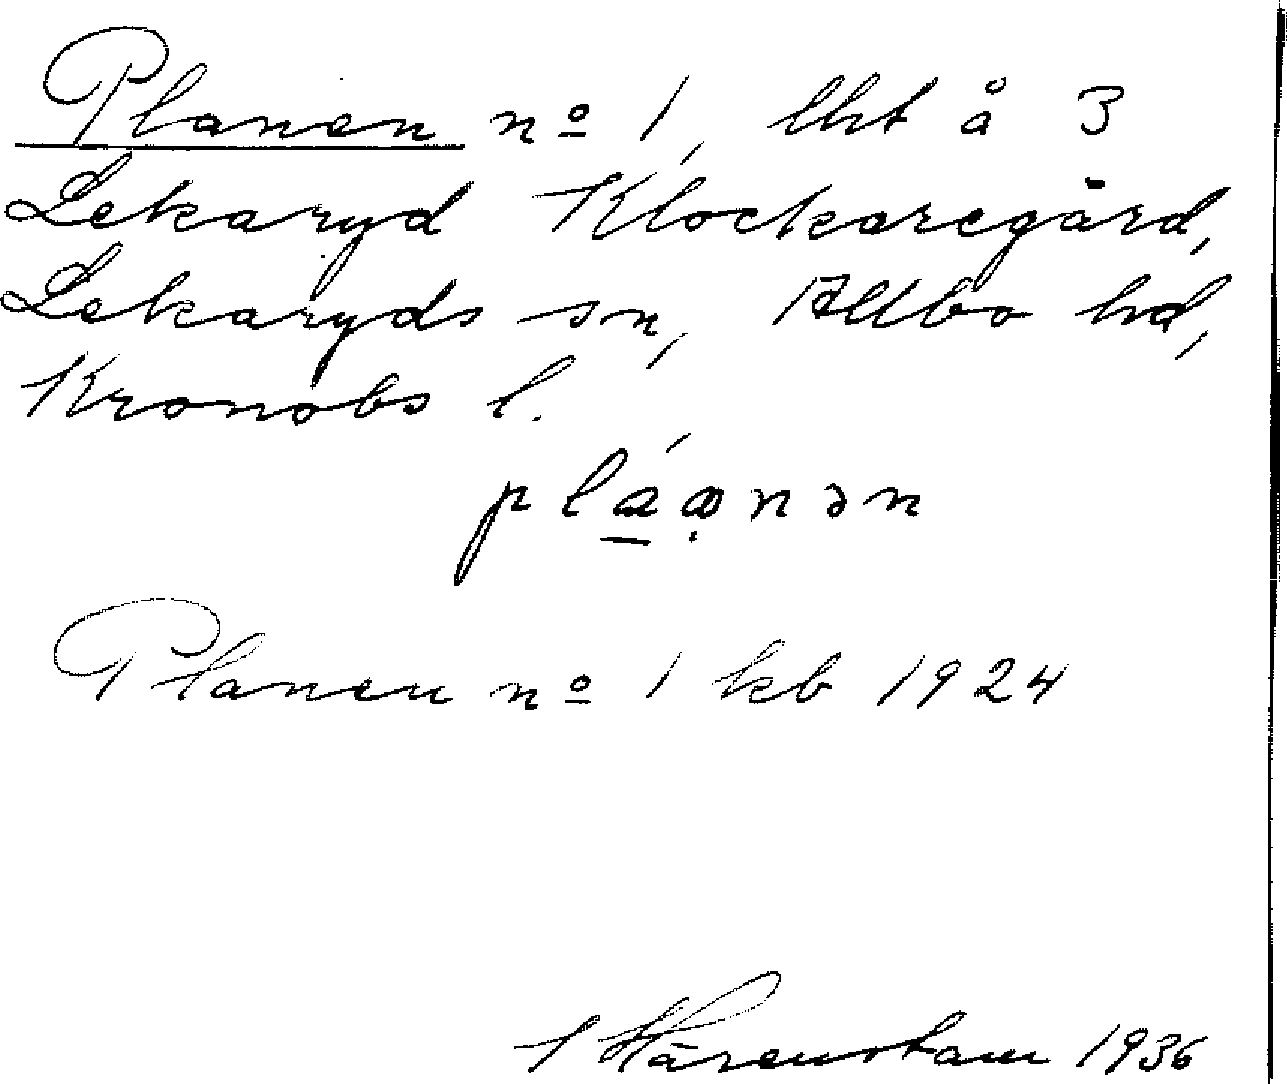 Planen nº 1, lht å 3
Lekaryd Klockaregård,
Lekaryds sn, Allbo hd,
Kronobs l.
pláꭃnən
Planen nº 1 kb 1924
Härenstam 1936